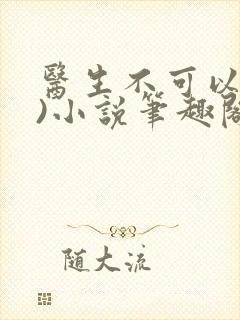 醫生不可以
)小説筆趣閣
随大流